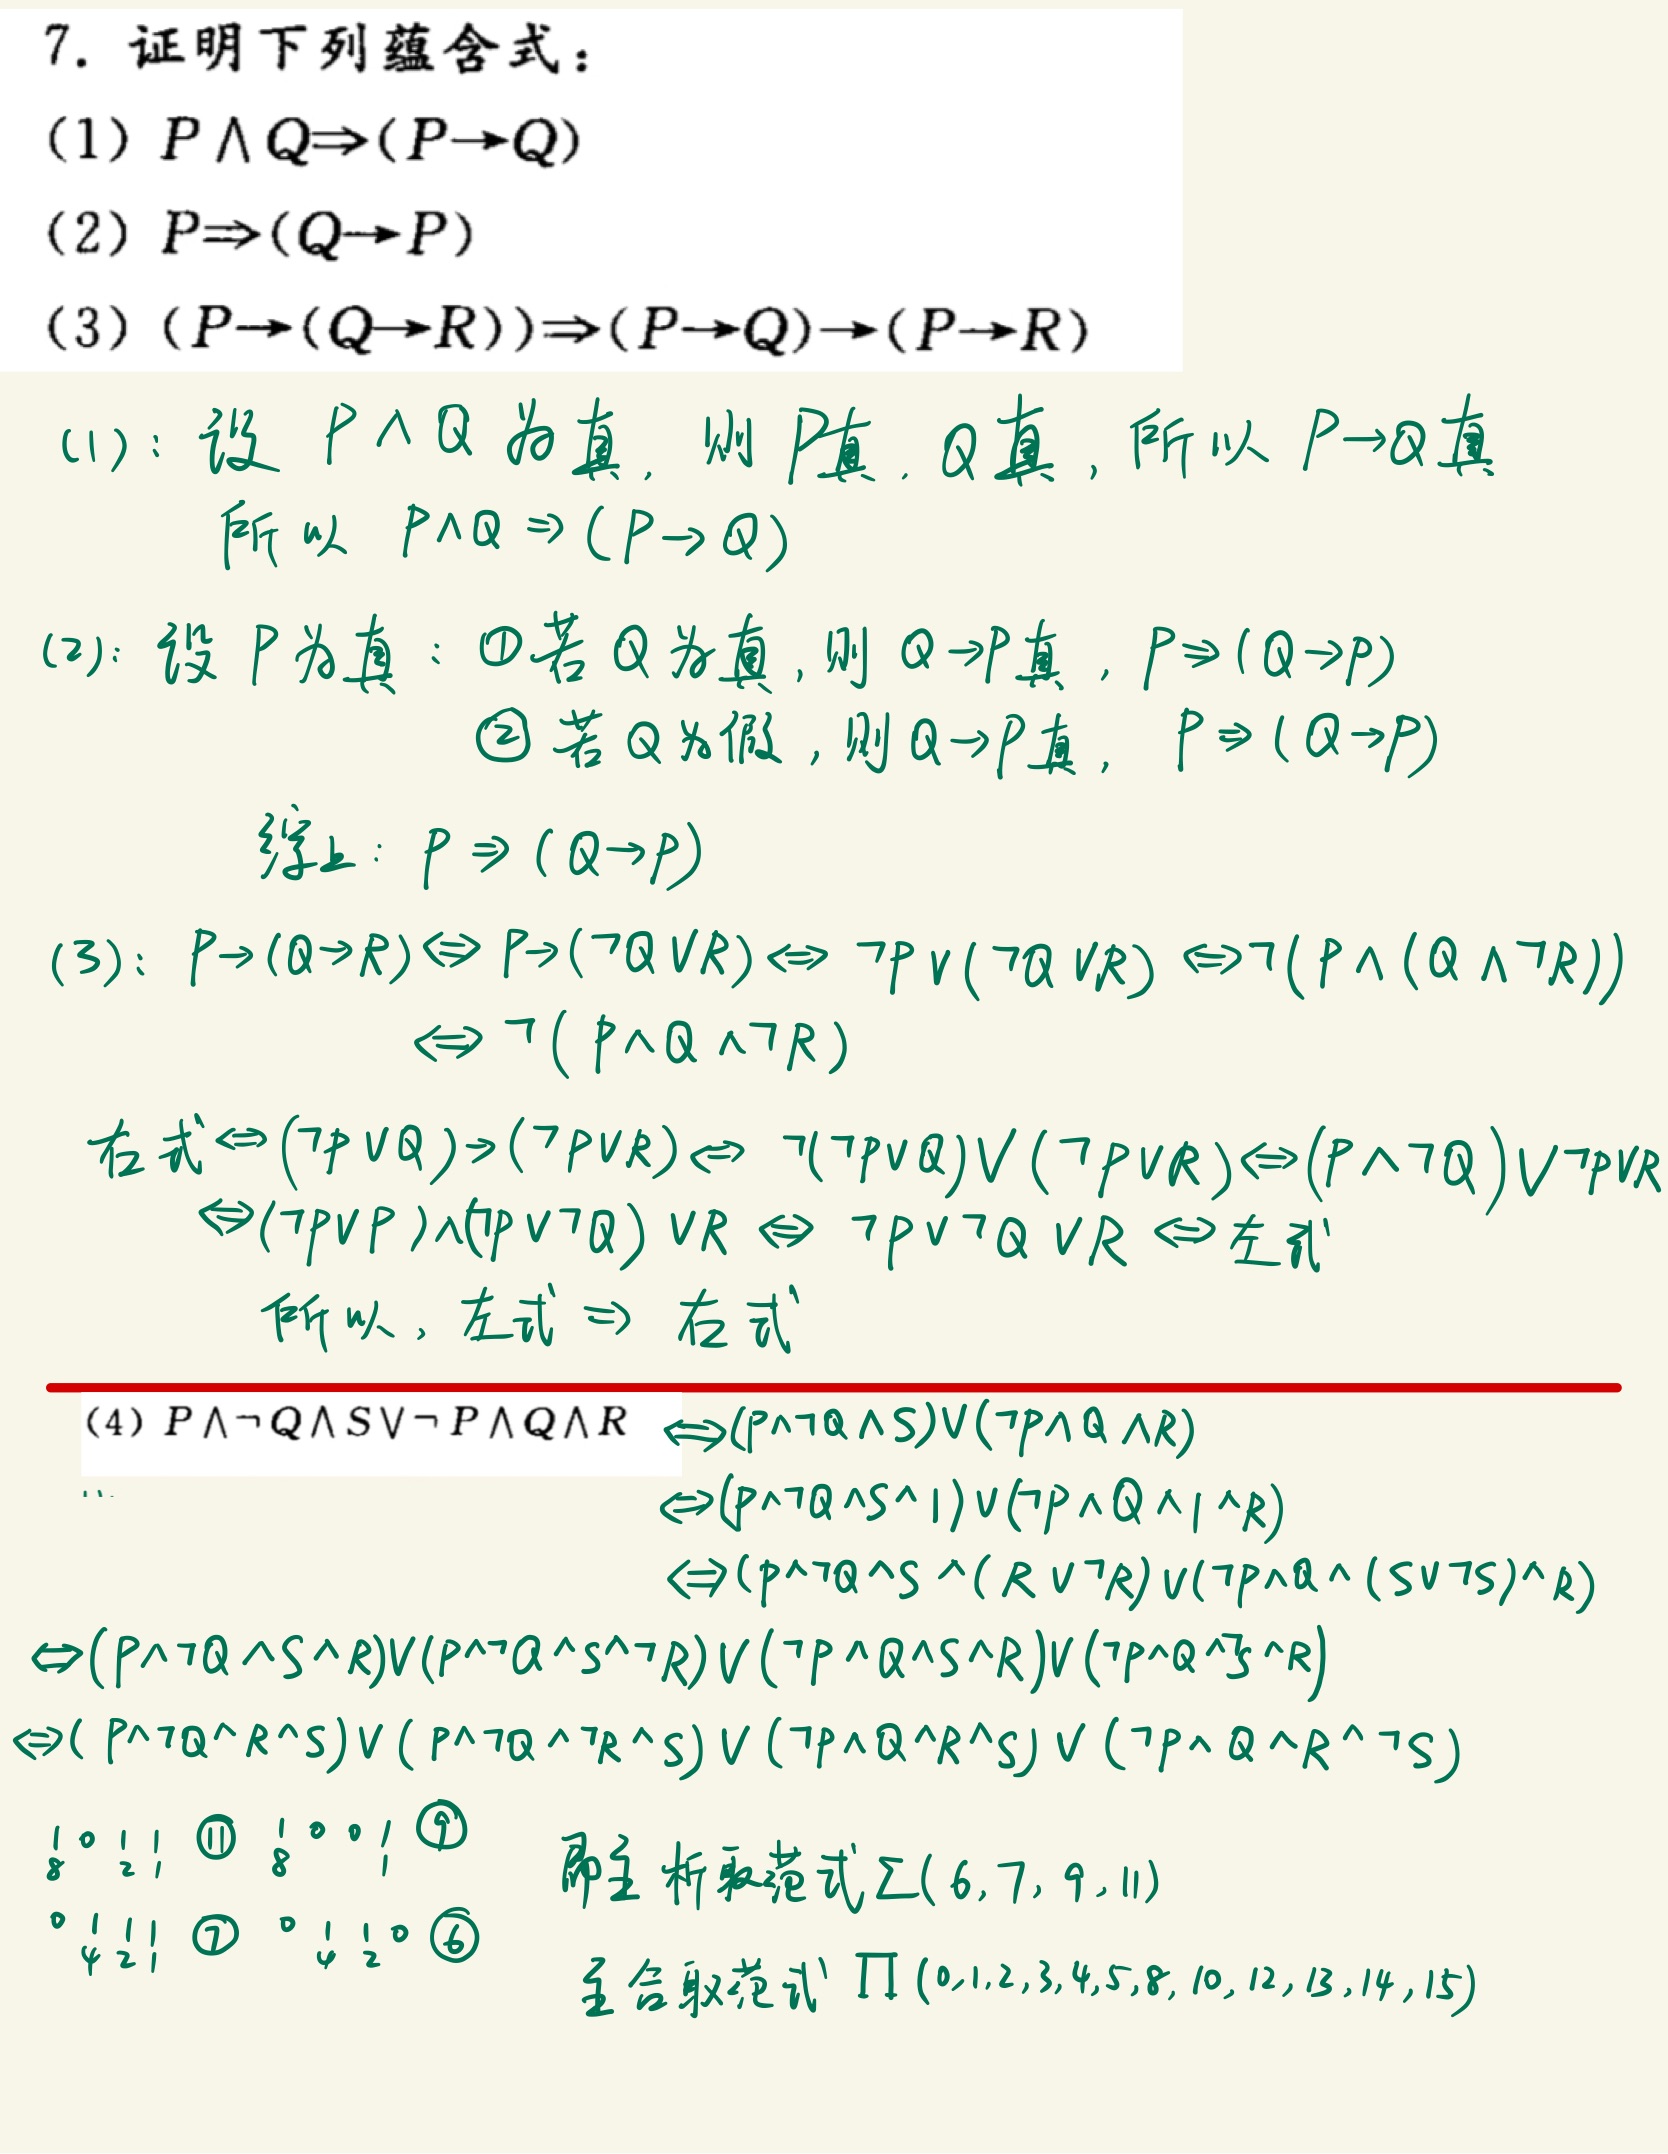 7. 证明下列蕴含式：
(1) P∧Q⇒(P→Q)
(2) P⇒(Q→P)
(3) (P→(Q→R))⇒(P→Q)→(P→R)
(1)：设 P∧Q 为真，则 P真，Q真，所以 P→Q 真
所以 P∧Q ⇒ (P→Q)
(2)：设 P 为真：①若 Q 为真，则 Q→P真，P⇒(Q→P)
②若 Q 为假，则 Q→P真，P⇒(Q→P)
综上：P⇒(Q→P)
(3)：P→(Q→R)⇔P→(¬Q∨R)⇔¬P∨(¬Q∨R)⇔¬(P∧(Q∧¬R))
⇔¬(P∧Q∧¬R)
右式⇔(¬P∨Q)→(¬P∨R)⇔¬(¬P∨Q)∨(¬P∨R)⇔(P∧¬Q)∨¬P∨R
⇔(¬P∨P)∧(¬P∨¬Q)∨R⇔¬P∨¬Q∨R⇔左式
所以，左式⇒右式
(4) P∧¬Q∧S∨¬P∧Q∧R ⇔(P∧¬Q∧S)∨(¬P∧Q∧R)
⇔(P∧¬Q∧S∧1)∨(¬P∧Q∧1∧R)
⇔(P∧¬Q∧S∧(R∨¬R)∨(¬P∧Q∧(S∨¬S)∧R)
⇔(P∧¬Q∧S∧R)∨(P∧¬Q∧S∧¬R)∨(¬P∧Q∧S∧R)∨(¬P∧Q∧¬S∧R)
⇔(P∧¬Q∧R∧S)∨(P∧¬Q∧¬R∧S)∨(¬P∧Q∧R∧S)∨(¬P∧Q∧R∧¬S)
1 0 1 1 ⑪ 1 0 0 1 ⑨
8 2 1 8 1
即主析取范式∑(6,7,9,11)
0 1 1 1 ⑦ 0 1 1 0 ⑥
4 2 1 4 2
主合取范式∏(0,1,2,3,4,5,8,10,12,13,14,15)